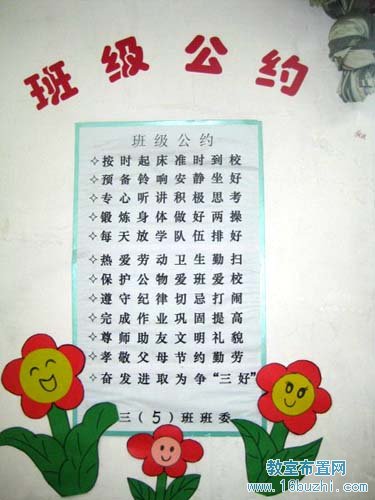 班级公约
班级公约
✧按时起床准时到校
✧预备铃响安静坐好
✧专心听讲积极思考
✧锻炼身体做好两操
✧每天放学队伍排好
✧热爱劳动卫生勤扫
✧保护公物爱班爱校
✧遵守纪律切忌打闹
✧完成作业巩固提高
✧尊师助友文明礼貌
✧孝敬父母节约勤劳
✧奋发进取为争“三好”
三（5）班班委
教室布置网
www.16buzhi.com